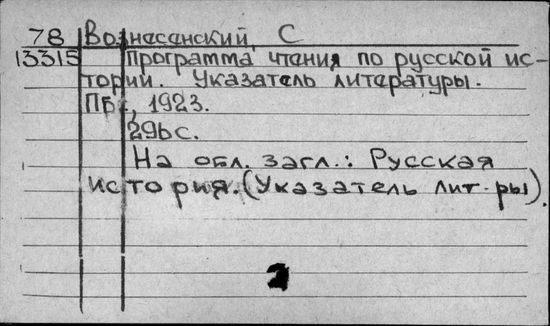 78 Вознесенский, С
13315 Программа чтения по русской ис-
тории. Указатель литературы.
Пб., 1923.
296с.
На обл. загл.: Русская
история. (Указатель лит-ры).